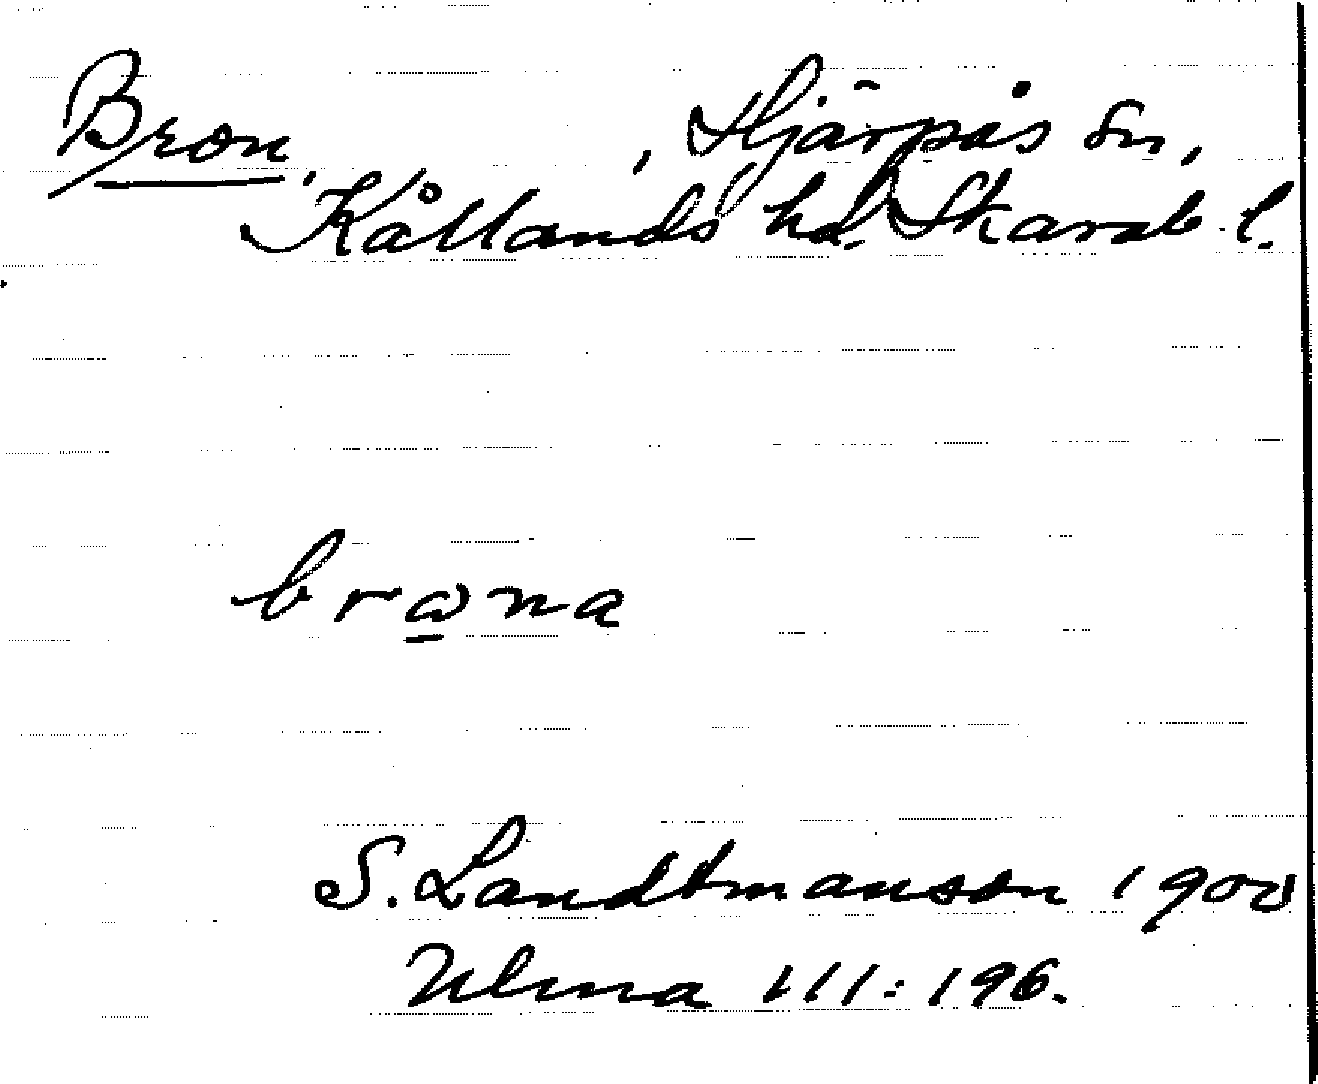 Bron, , Hjärpås sn,
Kållands hd. Skarab. l.
brωna
S. Landtmanson 1900
Ulma 111:196.